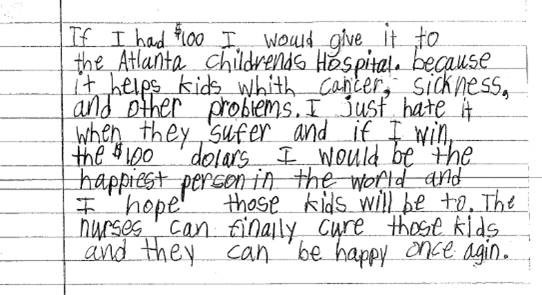 If I had $100 I would give it to
the Atlanta childrends Hospital. because
it helps kids whith cancer, sickness,
and other problems. I just hate it
when they sufer and if I win
the $100 dolars I would be the
happiest person in the world and
I hope those kids will be to. The
nurses can finally cure those kids
and they can be happy once agin.